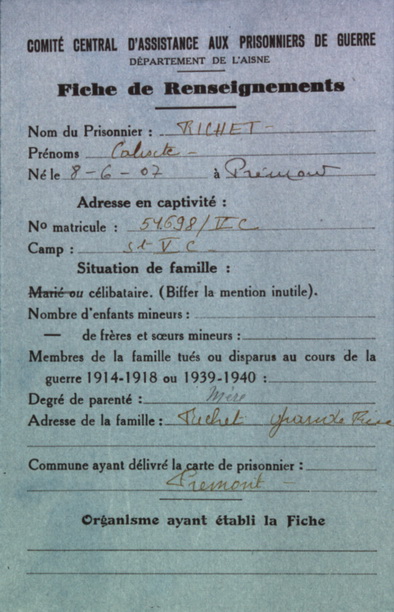 COMITÉ CENTRAL D'ASSISTANCE AUX PRISONNIERS DE GUERRE
DÉPARTEMENT DE L'AISNE
Fiche de Renseignements
Nom du Prisonnier : RICHET -
Prénoms Calixte -
Né le 8-6-07 à Prémont
Adresse en captivité :
No matricule : 54698/V C
Camp : st V C
Situation de famille :
Marié ou célibataire. (Biffer la mention inutile).
Nombre d'enfants mineurs :
— de frères et sœurs mineurs :
Membres de la famille tués ou disparus au cours de la
guerre 1914-1918 ou 1939-1940 :
Degré de parenté : Mère
Adresse de la famille : Richet grande Rue
Commune ayant délivré la carte de prisonnier :
Premont -
Organisme ayant établi la Fiche